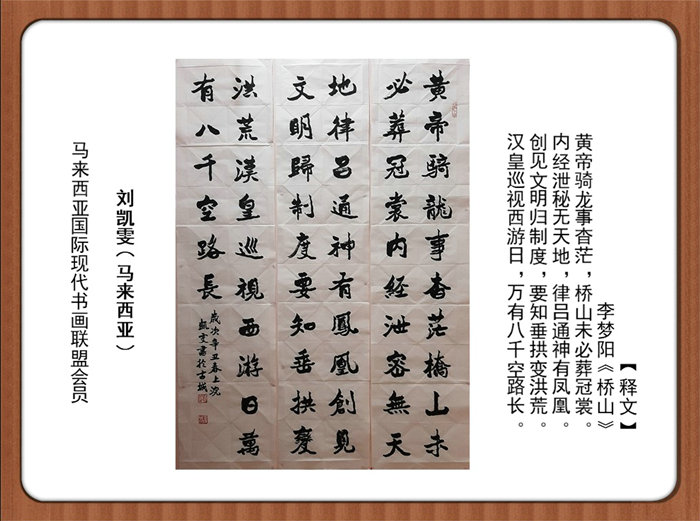 【释文】
李梦阳《桥山》
黄帝骑龙事杳茫,桥山未必葬冠裳。
内经泄秘无天地,律吕通神有凤凰。
创见文明归制度,要知垂拱变洪荒。
汉皇巡视西游日,万有八千空路长。
黄帝騎龍事杳茫橋山未
必葬冠裳内經泄密無天
地律吕通神有鳳凰創見
文明歸制度要知垂拱變
洪荒漢皇巡視西游日萬
有八千空路長
歲次辛丑春上浣
凱雯書於古城
刘凯雯(马来西亚)
马来西亚国际现代书画联盟会员